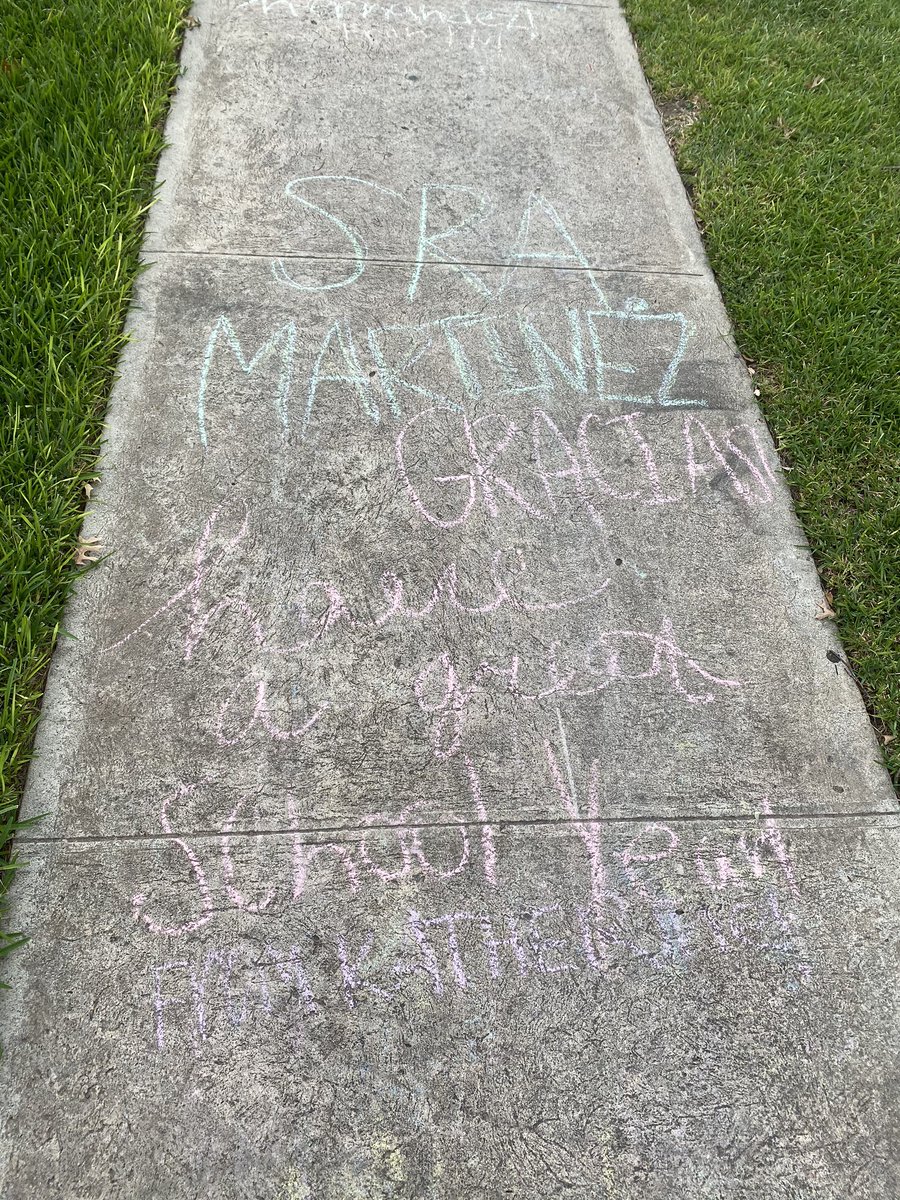 SRA
MARTINEZ
GRACIAS
have
a great
School Year
FROM KATHERINE